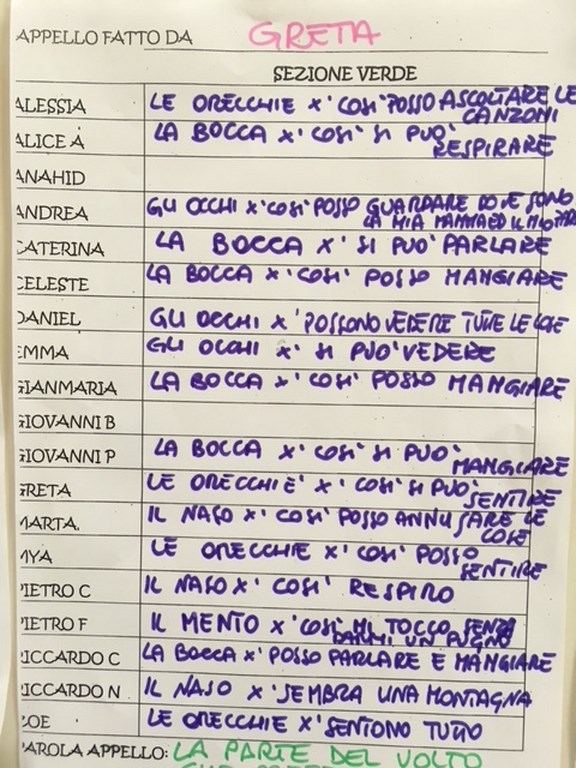 APPELLO FATTO DA GRETA
SEZIONE VERDE
ALESSIA LE ORECCHIE X' COSI' POSSO ASCOLTARE LE
CANZONI
ALICE A LA BOCCA X' COSI' SI PUO'
RESPIRARE
ANAHID
ANDREA GLI OCCHI X' COSI' POSSO GUARDARE DOVE SONO
LA MIA MAMMA ED IL MIO
CATERINA LA BOCCA X' SI PUO' PARLARE
CELESTE LA BOCCA X' COSI' POSSO MANGIARE
DANIEL GLI OCCHI X' POSSONO VEDERE TUTTE LE COSE
EMMA GLI OCCHI X' SI PUO' VEDERE
GIANMARIA LA BOCCA X' COSI' POSSO MANGIARE
GIOVANNI B
GIOVANNI P LA BOCCA X' COSI' SI PUO'
MANGIARE
GRETA LE ORECCHIE' X' COSI' SI PUO'
SENTIRE
MARTA. IL NASO X' COSI' POSSO ANNUSARE LE
COSE
MYA LE ORECCHIE X' COSI' POSSO
SENTIRE
PIETRO C IL NASO X' COSI' RESPIRO
PIETRO F IL MENTO X' COSI' MI TOCCO SENZA
DARMI UN PUGNO
RICCARDO C LA BOCCA X' POSSO PARLARE E MANGIARE
RICCARDO N IL NASO X' SEMBRA UNA MONTAGNA
ZOE LE ORECCHIE X' SENTONO TUTTO
PAROLA APPELLO: LA PARTE DEL VOLTO